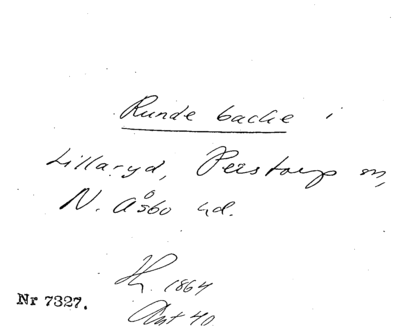 Runde backe i
Lillaryd, Perstorp sn,
N. Åsbo hd.
1864
Ant 40
Nr 7327.